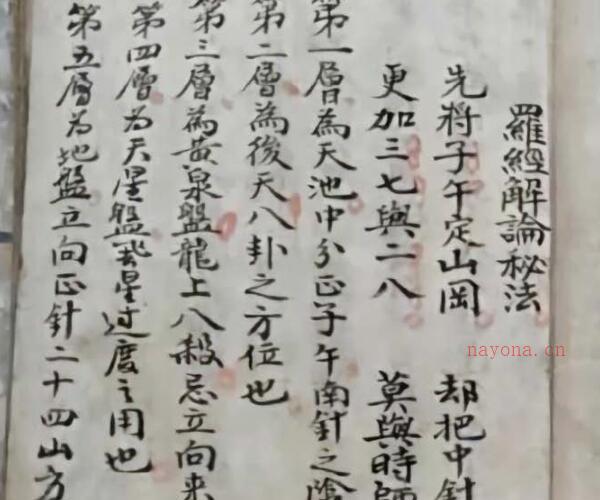 羅經解論秘法
先將子午定山岡 却把中針
更加三七與二八 莫與時師
第一層為天池中分正子午南針之陰
第二層為後天八卦之方位也
第三層為黃泉盤龍上八殺忌立向来
第四層為天星盤飛星过度之用也
第五層为地盤立向正針二十四山方
nayona.cn